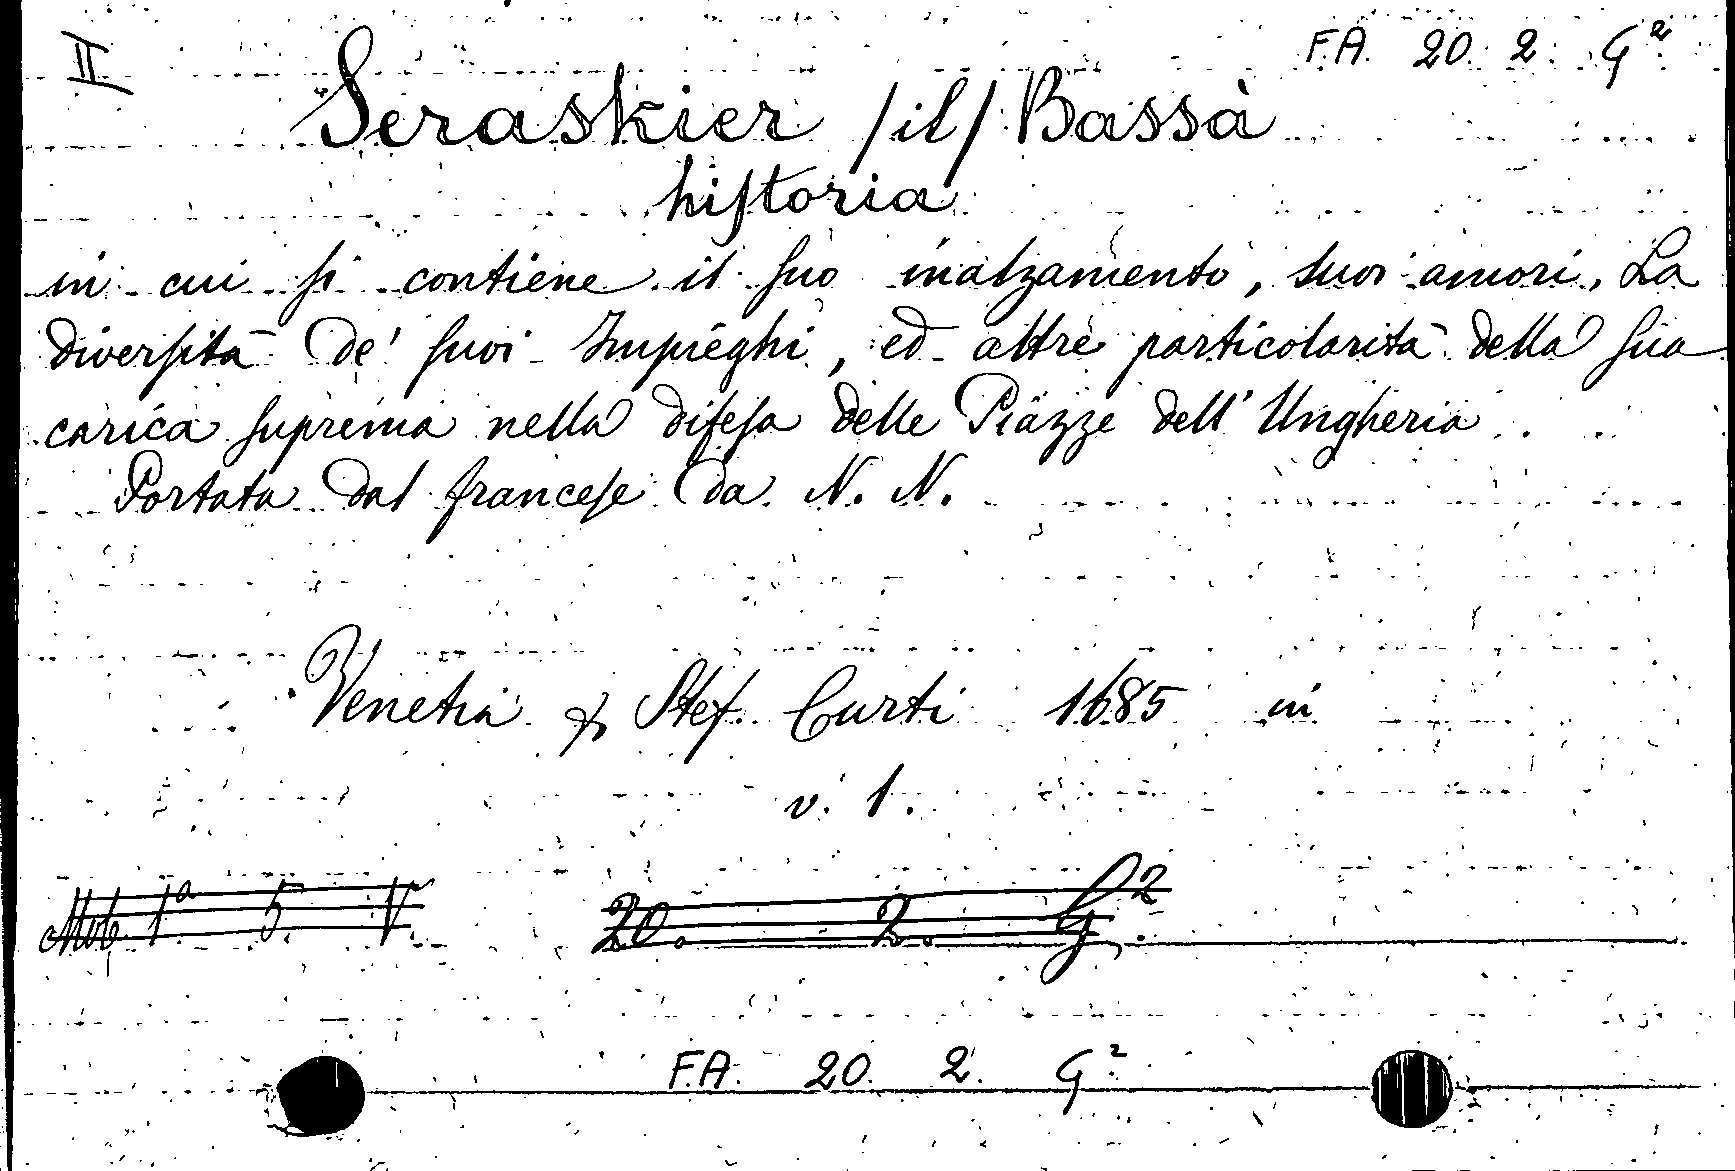 II
F.A. 20. 2. G².
Seraskier /il/ Bassà
hiſtoria
in cui ſi contiene il ſuo inalzamento, suoi amori, La
diverſità de' ſuoi Impieghi, ed altre particolarità della ſua
carica ſuprema nella difeſa delle Piazze dell' Ungheria
Portata dal franceſe da N. N.
Venetia Stef. Curti 1685 in
v. 1.
Mob 1ª 5. V. 20. 2. G².
F.A. 20. 2. G²